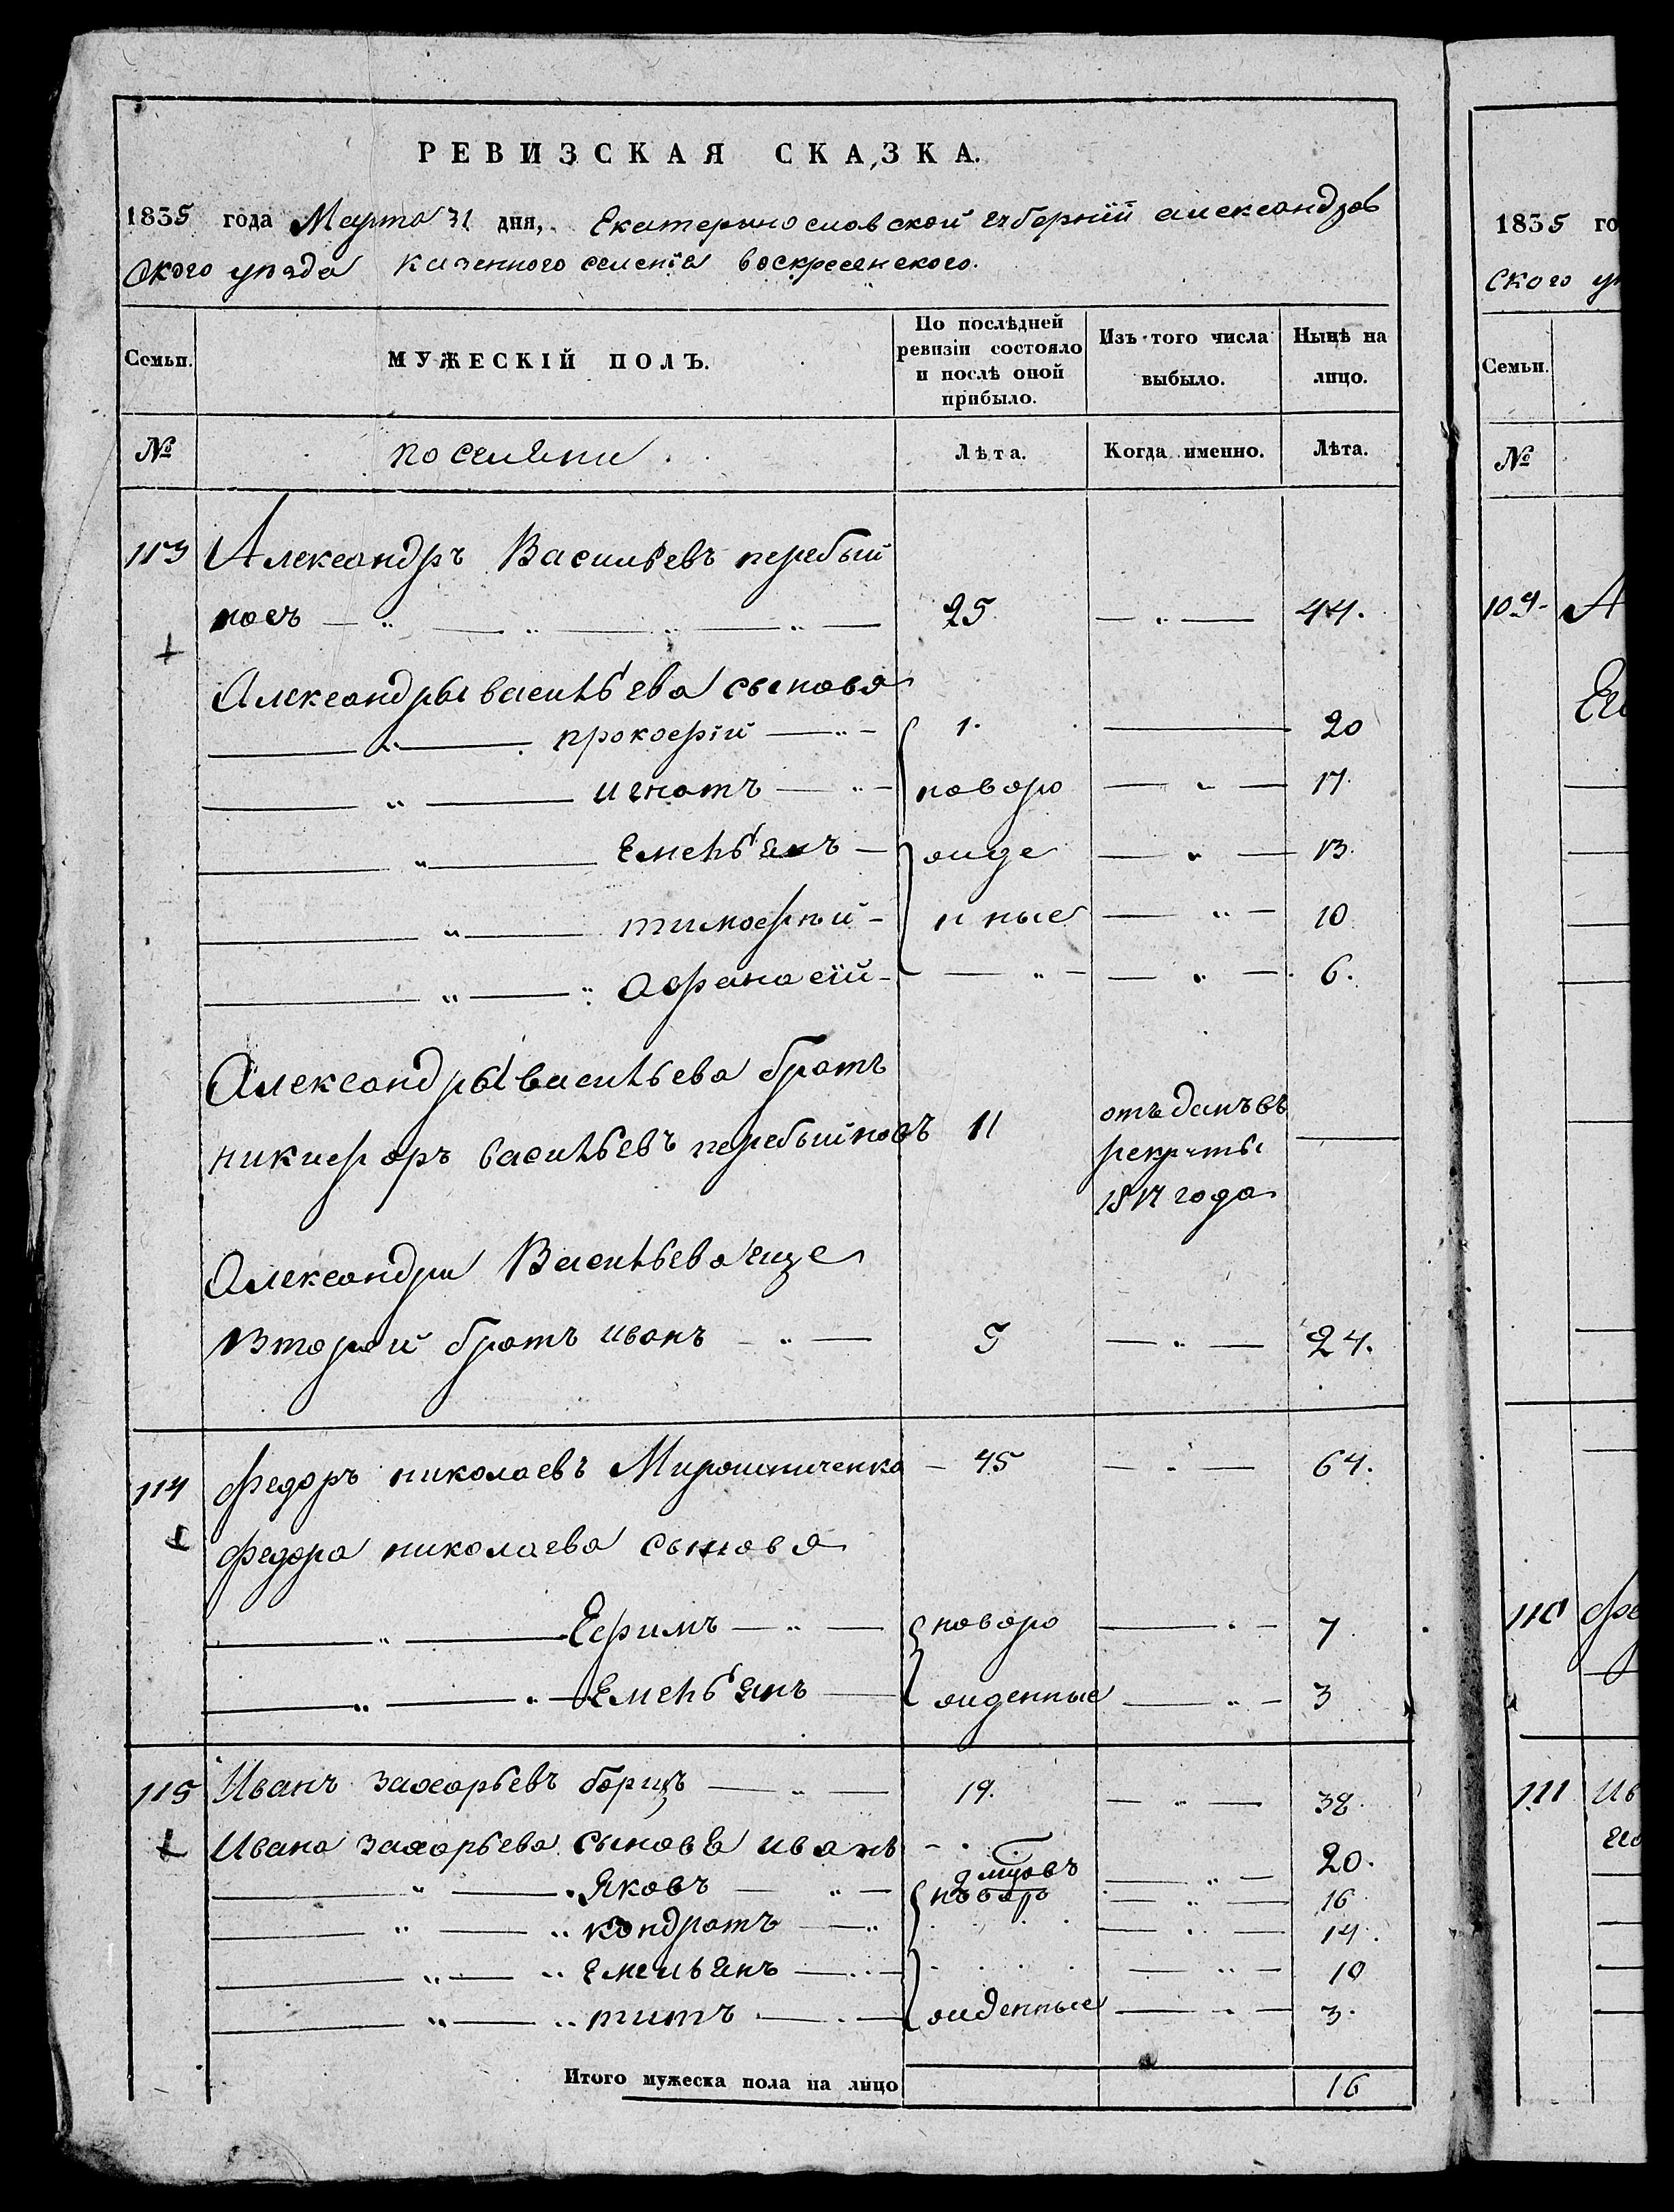 РЕВИЗСКАЯ СКАЗКА.
1835 года Марта 31 дня, Екатеринославской губерній александров
скаго уезда казенного селенія воскресенского.
Семьи. МУЖЕСКІЙ ПОЛЪ. По послѣдней ревизіи состояло и послѣ оной прибыло. Изъ того числа выбыло. Нынѣ на лицо.
№ Лѣта. Когда именно. Лѣта.
113 Александръ Васильевъ перебый
носъ — " — " — " — " — 25 — " — 44.
Александры васильева сыновя
— " — прокофій — " — 1. — 20
— " — игнатъ — " — новоро — " — 17.
— " — Емельянъ — ѫиде — " — 13.
— " — тимофѣй — нные — " — 10
— " — Афанасій — — " — — " — 6.
Александры васильева братъ
никифоръ васильевъ перебыйносъ 11 отъданъ въ
рекруты
1817 года
Александра Васильева еще
Второй братъ иванъ — " — 5 — " — 24.
114 федоръ николаевъ Мирошниченко — 45 — " — 64.
федора николаева сыновя
— " — Ефимъ — " — новоро — " — 7
— " — Емельянъ — жденные — " — 3
115 Иванъ захарьевъ борщъ — " — 19. — " — 38.
Ивана захарьева сыновя иванъ — 20.
— " — Яковъ — " — новоро — " — 16
— " — кондратъ — " — — " — 14.
— " — емельянъ — " — — " — 10
— " — титъ — " — жденные — " — 3.
Итого мужеска пола на лицо 16
1835 го
ского у
Семьи.
№
109 А
110 фе
111 Ив